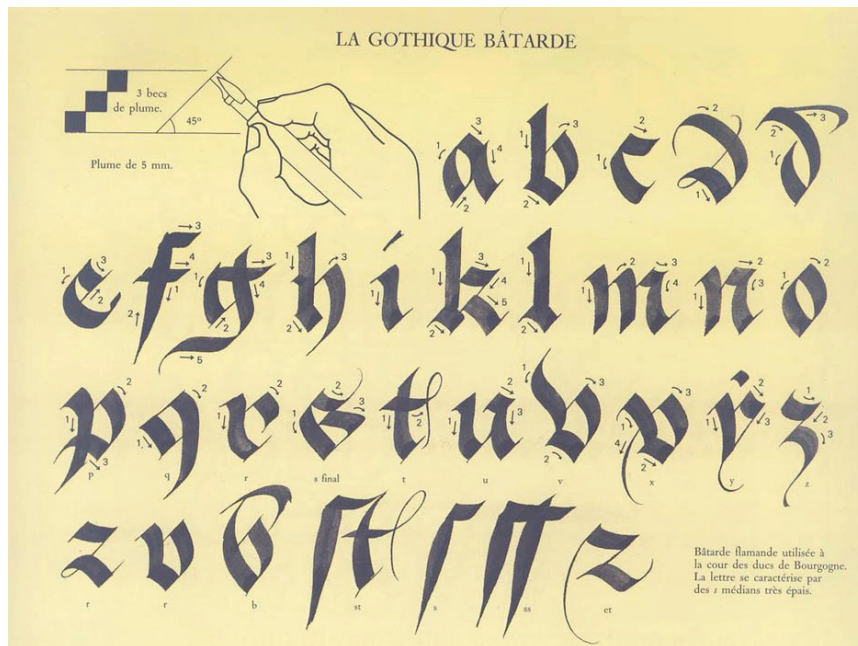 LA GOTHIQUE BÂTARDE
3 becs
de plume.
45°
Plume de 5 mm.
a b c d d
e f g h i k l m n o
p q r s t u v x y z
p q r s final t u v x y z
r r b st s ss et
r r b st s ss et
Bâtarde flamande utilisée à
la cour des ducs de Bourgogne.
La lettre se caractérise par
des s médians très épais.